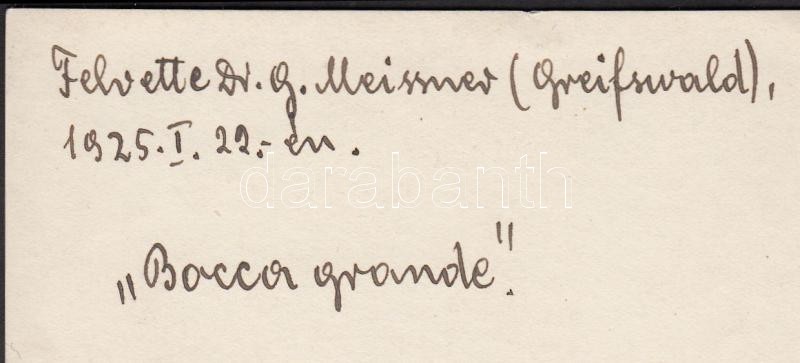 Felvette Dr. G. Meissner (Greifswald),
1925. I. 22.-én.
darabanth
„Bocca grande".